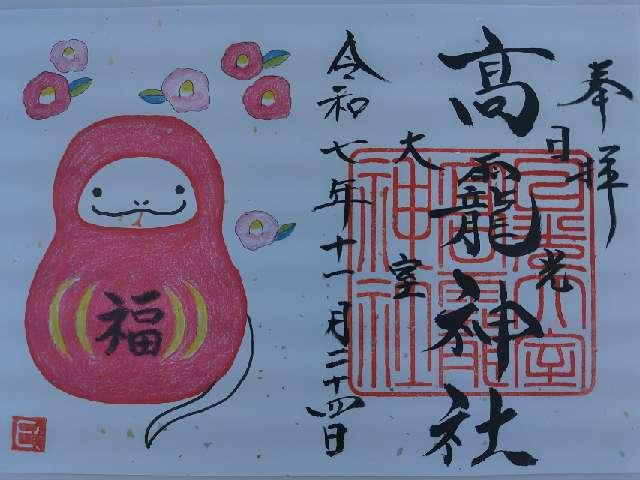 奉拝
日光
高龗神社
大室
令和七年十一月二十四日
福
日光大室
高龗
神社
巳